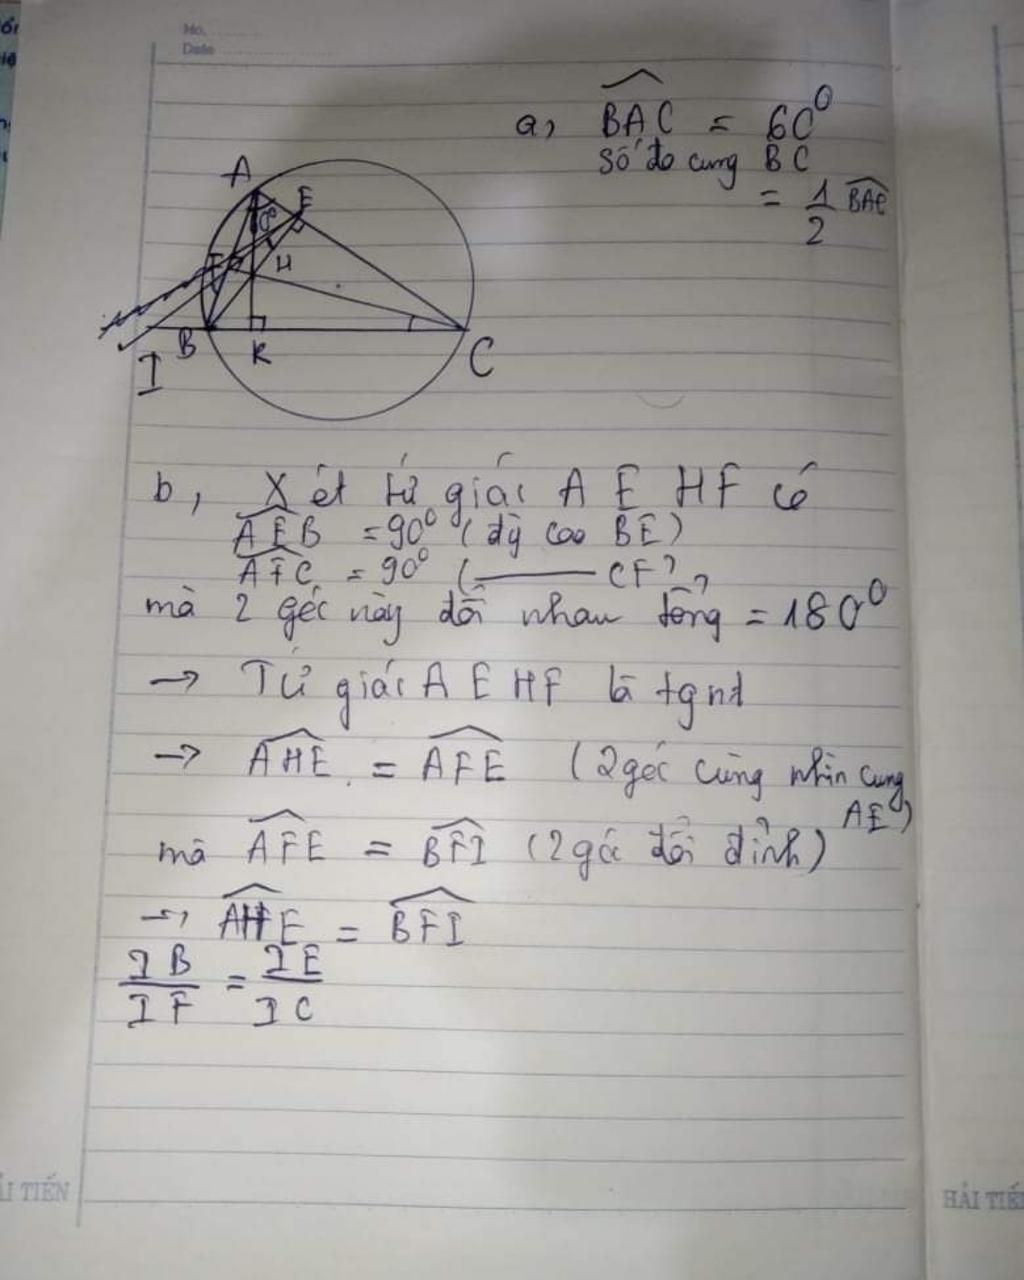 No.
Date
a, BAC = 60⁰
số đo cung BC
= 1/2 BAC
A
E
F
H
B
K
C
I
b, Xét tứ giác AEHF có
AEB = 90⁰ (đg cao BE)
AFC = 90⁰ (——— CF)
mà 2 góc này đối nhau tổng = 180⁰
→ Tứ giác AEHF là tgnt
→ AHE = AFE (2 góc cùng nhìn cung AE)
mà AFE = BFI (2 góc đối đỉnh)
→ AHE = BFI
IB/IF = IE/IC
ẢI TIẾN
HẢI TIẾ